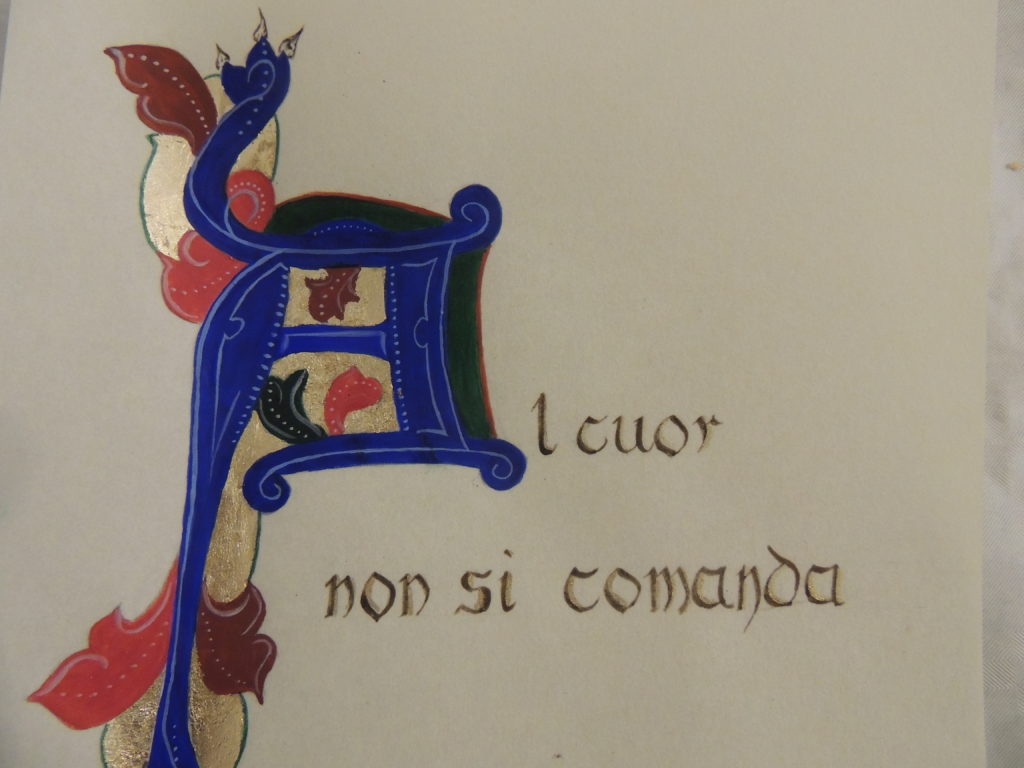 Al cuor
non si comanda